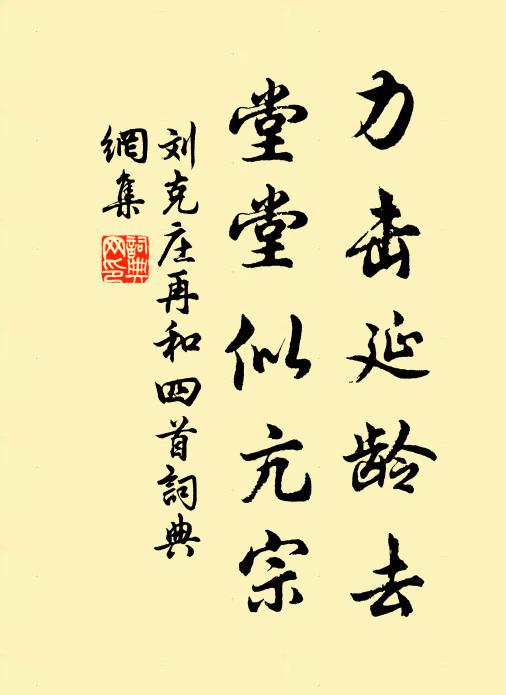 力击延龄去
堂堂似亢宗
刘克庄再和四首詞典
網集
詞典
网印